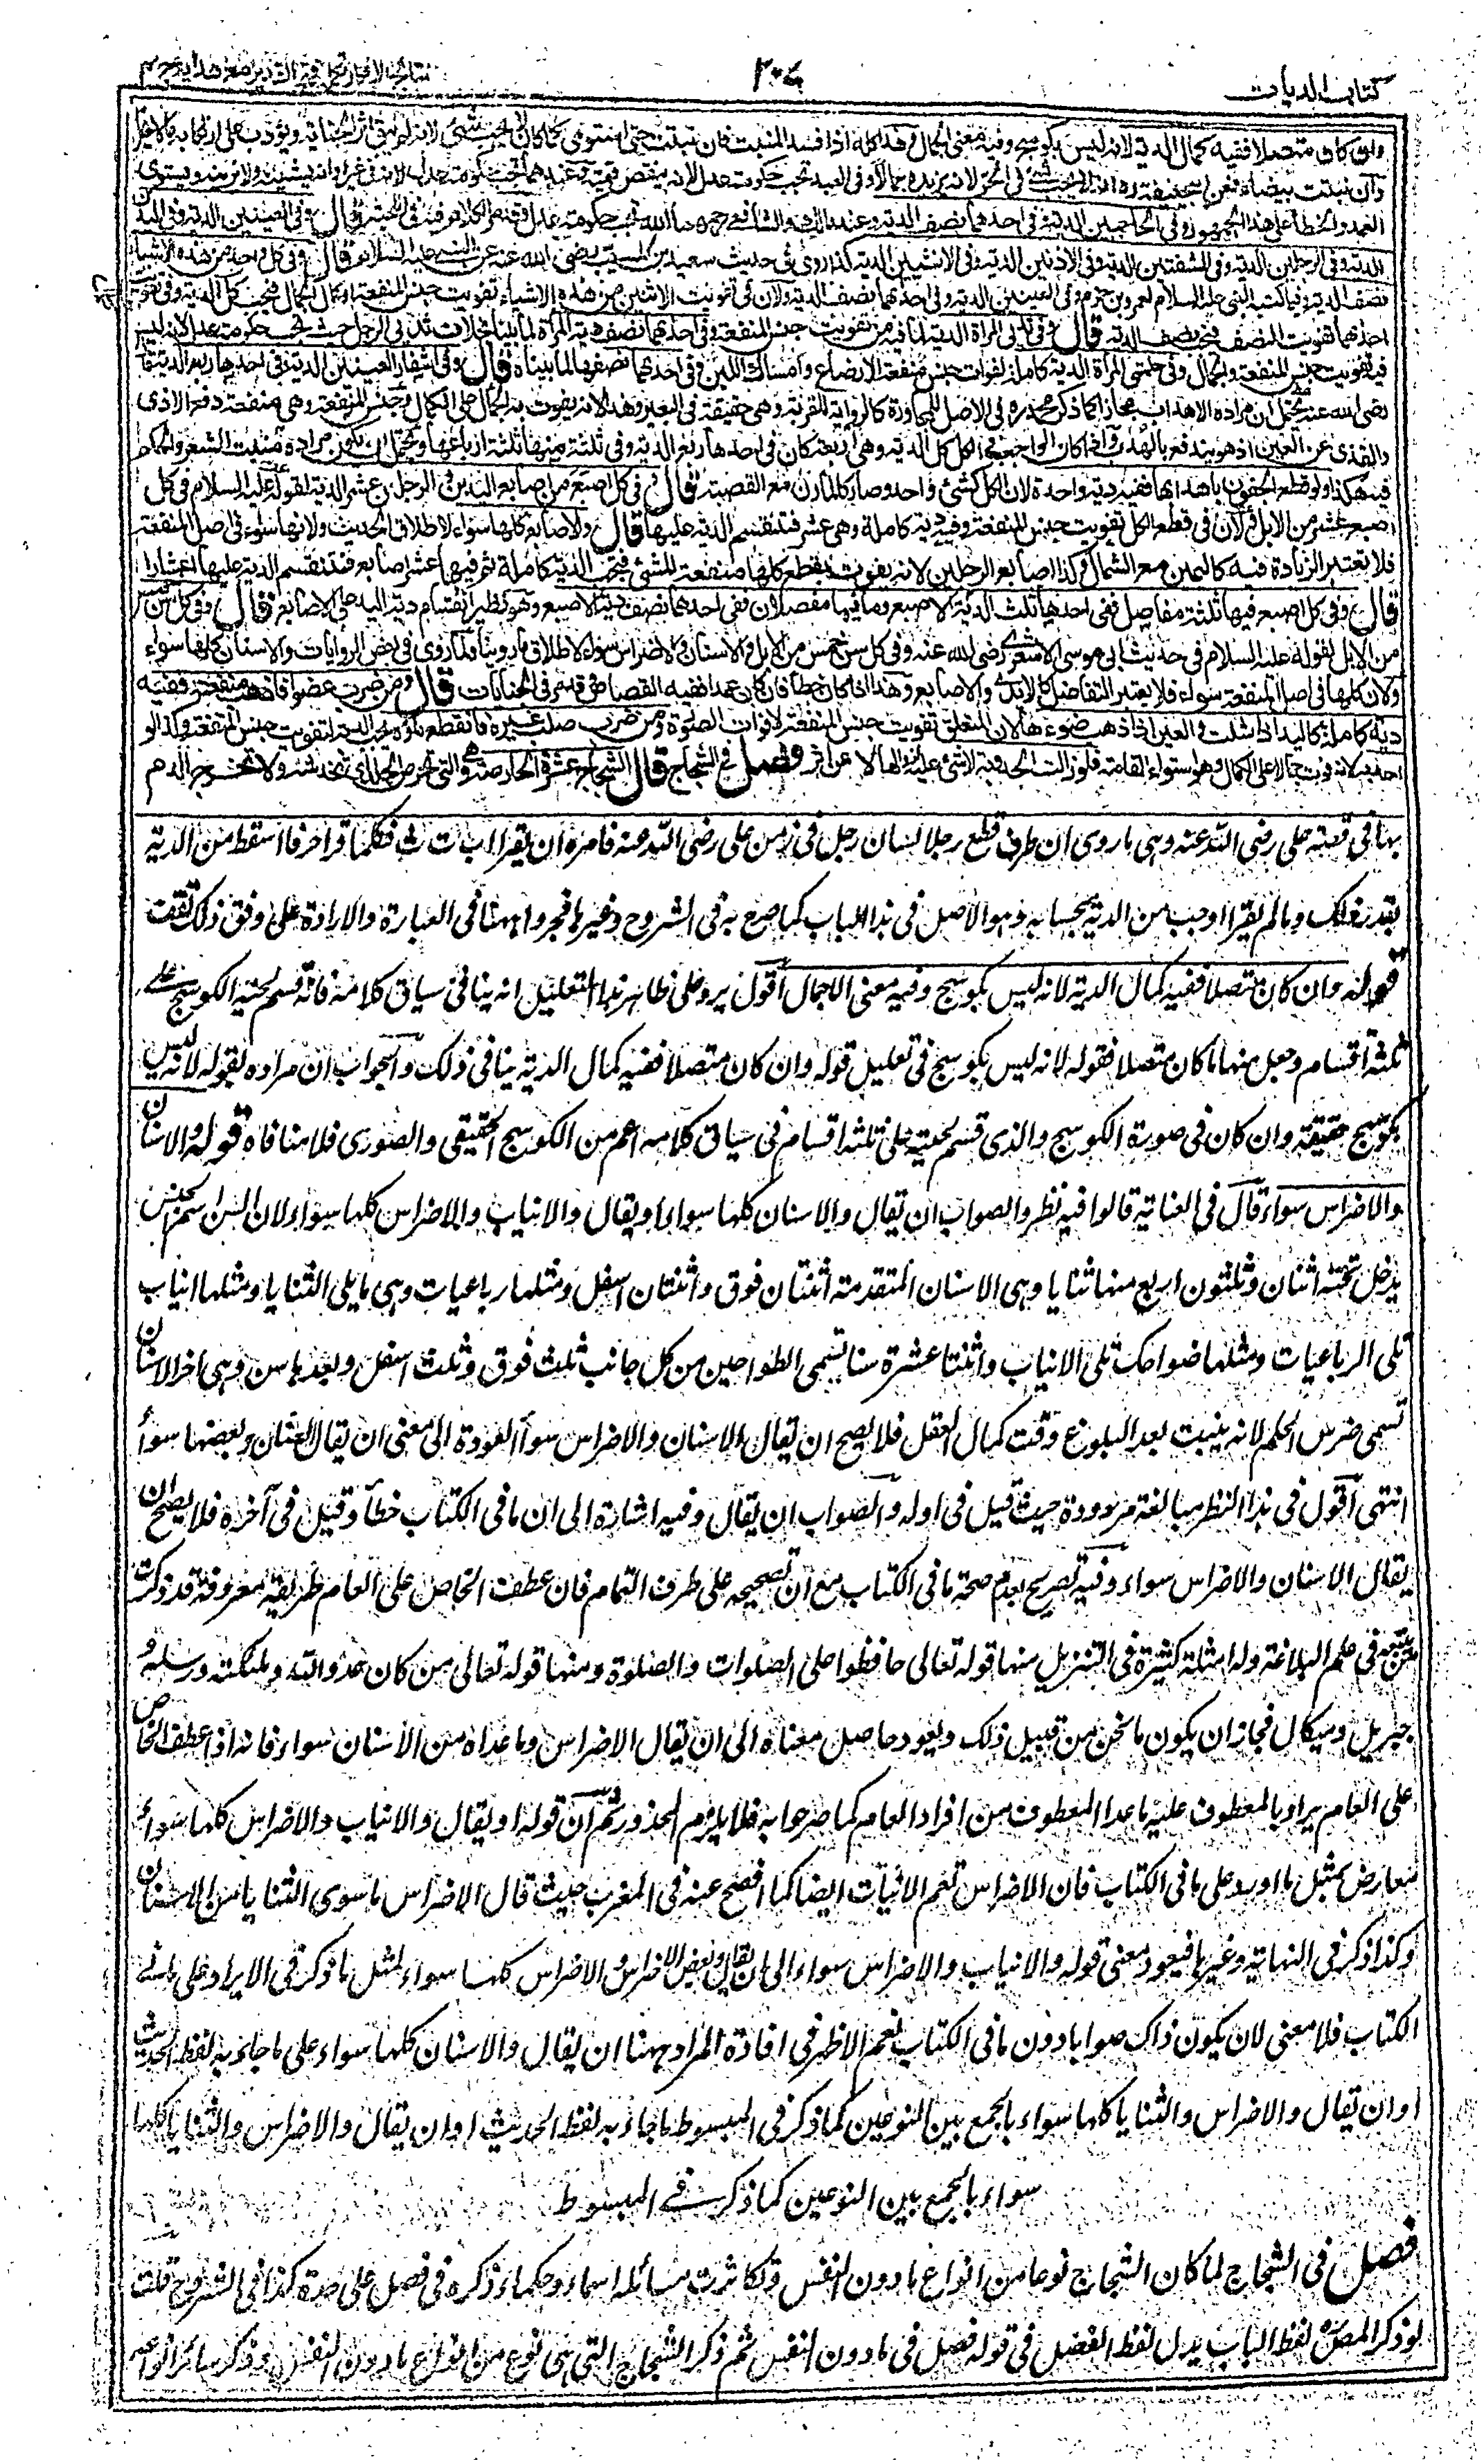 كتاب الديات
٢٠٤
نتائج الافكار تكملة فتح القدير مع هداية ج ٤
وان كان متصلا ففيه كمال الدية لانه ليس بكوسج وفيه معنى الجمال وهذا كله اذا افسد المنبت فان نبتت حتى استوى كما كان لا يجب شئ لانه لم يبق اثر الجناية ويؤدب على ارتكابه مالا يحل
وان نبتت بيضاء فعن ابي حنيفة رح انه لا يجب شئ في الحر لانه يزيده جمالا وفي العبد تجب حكومة عدل لانه ينقص قيمته وعندهما تجب حكومة عدل لانه في غير اوانه يشينه ولا يزينه ويستوى
العمد والخطأ على هذا الجمهور وفي الحاجبين الدية وفي احدهما نصف الدية وعند مالك والشافعي رحمهما الله تجب حكومة عدل وقد مر الكلام فيه في اللحية قال وفي العينين الدية وفي اليدين
الدية وفي الرجلين الدية وفي الشفتين الدية وفي الاذنين الدية وفي الانثيين الدية كذا روى في حديث سعيد بن المسيب رضي الله عنه عن النبي عليه السلام قال وفي كل واحد من هذه الاشياء
نصف الدية وفيما كتبه النبي عليه السلام لعمرو بن حزم وفي العينين الدية وفي احدهما نصف الدية ولان في تفويت الاثنين من هذه الاشياء تفويت جنس المنفعة او كمال الجمال فيجب كل الدية وفي تفويت
احدهما تفويت النصف فيجب نصف الدية قال وفي ثديي المرأة الدية لما فيه من تفويت جنس المنفعة وفي احدهما نصف دية المرأة لما بينا بخلاف ثديي الرجل حيث تجب حكومة عدل لانه ليس
فيه تفويت جنس المنفعة والجمال وفي حلمتي المرأة الدية كاملة لفوات جنس منفعة الارضاع وامساك اللبن وفي احدهما نصفها لما بيناه قال وفي اشفار العينين الدية وفي احدها ربع الدية قال
رضي الله عنه يحتمل ان مراده الاهداب مجازا كما ذكر محمد رح في الاصل للمجاورة كالرواية للقربة وهي حقيقة في البعير وهذا لانه يفوت به الجمال على الكمال وجنس المنفعة وهي منفعة دفع الاذى
والقذى عن العين اذ هو يندفع بالهدب واذا كان الواجب في الكل كل الدية وهي اربعة كان في احدها ربع الدية وفي ثلثة منها ثلثة ارباعها ويحتمل ان يكون مراده منبت الشعر والحكم
فيه هكذا ولو قطع الجفون باهدابها ففيه دية واحدة لان الكل كشئ واحد وصار كالمارن مع القصبة قال وفي كل اصبع من اصابع اليدين والرجلين عشر الدية لقوله عليه السلام في كل
اصبع عشر من الابل ولان في قطع الكل تفويت جنس المنفعة وفيه دية كاملة وهي عشر فتنقسم الدية عليها قال والاصابع كلها سواء لاطلاق الحديث ولانها سواء في اصل المنفعة
فلا يعتبر الزيادة فيه كاليمين مع الشمال وكذا اصابع الرجلين لانه يفوت بقطع كلها منفعة المشي فتجب الدية كاملة ثم فيهما عشر اصابع فتنقسم الدية عليها اعشارا
قال وفي كل اصبع فيها ثلثة مفاصل ففي احدها ثلث الدية الاصبع وما فيها مفصلان ففي احدهما نصف دية الاصبع وهو نظير انقسام دية اليد على الاصابع قال وفي كل سن خمس
من الابل لقوله عليه السلام في حديث ابي موسى الاشعري رضي الله عنه وفي كل سن خمس من الابل والاسنان والاضراس سواء لاطلاق ما روينا ولما روى في بعض الروايات والاسنان كلها سواء
ولان كلها في اصل المنفعة سواء فلا يعتبر التفاضل كالايدي والاصابع وهذا اذا كان خطأ فان كان عمدا ففيه القصاص وقد مر في الجنايات قال ومن ضرب عضوا فاذهب منفعته ففيه
دية كاملة كاليد اذا شلت والعين اذا ذهب ضوءها لان المتعلق تفويت جنس المنفعة لا فوات الصورة ومن ضرب صلب غيره فانقطع ماؤه يجب الدية لتفويت جنس المنفعة وكذا لو
احدبه لانه فوت جمالا على الكمال وهو استواء القامة فلو زالت الحدوبة لا شئ عليه لزوالها لا عن اثر فصل في الشجاج قال الشجاج عشرة الحارصة وهي التي تحرص الجلد اي تخدشه ولا تخرج الدم
بها في قصة علي رضي الله عنه وهي ما روى ان طرف قطع رجل لسان رجل في زمن علي رضي الله عنه فامره ان يقرا ا ب ت ث فكلما قرا حرفا اسقط من الدية
بقدر ذلك وما لم يقرا اوجب من الدية بحسابه وهو الاصل في هذا الباب كما صرح به في الشروح وغيرها فجروا ههنا في العبارة والارادة على وفق ذلك تفقت
قوله وان كان متصلا ففيه كمال الدية لانه ليس بكوسج وفيه معنى الجمال اقول يرد على ظاهر هذا التعليل انه ينافي سياق كلامه فانه قسم لحية الكوسج على
ثلثة اقسام وجعل منها ما كان متصلا فقوله لانه ليس بكوسج في تعليل قوله وان كان متصلا ففيه كمال الدية ينافي ذلك والجواب ان مراده بقوله لانه ليس
بكوسج حقيقة وان كان في صورة الكوسج والذي قسم لحيته على ثلثة اقسام في سياق كلامه اعم من الكوسج الحقيقي والصوري فلا منافاة قوله والاسنان
والاضراس سواء قال في العناية قالوا فيه نظر والصواب ان يقال والاسنان كلها سواء او يقال والانياب والاضراس كلها سواء لان السن اسم جنس
يدخل تحته اثنان وثلثون اربع منها ثنايا وهي الاسنان المتقدمة اثنتان فوق واثنتان اسفل ومثلها رباعيات وهي ما يلى الثنايا ومثلها انياب
تلى الرباعيات ومثلها ضواحك تلى الانياب واثنتا عشرة سنا تسمى الطواحين من كل جانب ثلث فوق وثلث اسفل وبعدها سن وهي اخر الاسنان
تسمى ضرس الحلم لانه ينبت بعد البلوغ وقت كمال العقل فلا يصح ان يقال الاسنان والاضراس سواء لعودة الى معنى ان يقال الاسنان وبعضها سواء
انتهى اقول في هذا النظر مبالغة مردودة حيث قيل في اوله والصواب ان يقال وفيه اشارة الى ان ما في الكتاب خطأ وقيل في آخره فلا يصح ان
يقال الاسنان والاضراس سواء وفيه تصريح بعدم صحة ما في الكتاب مع ان تصحيحه على طرف التمام فان عطف الخاص على العام طريقة معروفة قد ذكرت
في علم البلاغة وله امثلة كثيرة في التنزيل منها قوله تعالى حافظوا على الصلوات والصلوة ومنها قوله تعالى من كان عدوا لله وملئكته ورسله و
جبريل وميكال فجاز ان يكون ما نحن من قبيل ذلك ويعود حاصل معناه الى ان يقال الاضراس وما عداه من الاسنان سواء فانه اذا عطف الخاص
على العام يراد بالمعطوف عليه ما عدا المعطوف من افراد العام كما صرحوا به فلا يلزم المحذور ثم ان قوله او يقال والانياب والاضراس كلها سواء
معارض بمثل ما اورد على ما في الكتاب فان الاضراس تعم الانياب ايضا كما افصح عنه في المغرب حيث قال الاضراس ما سوى الثنايا من الاسنان
وكذا ذكر في النهاية وغيرها فيعود معنى قوله والانياب والاضراس سواء الى ان يقال وبعض الاضراس والاضراس كلها سواء لمثل ما ذكر في الايراد على ما في
الكتاب فلا معنى لان يكون ذاك صوابا دون ما في الكتاب نعم الاظهر في افادة المراد ههنا ان يقال والاسنان كلها سواء على ما جاء به لفظ الحديث
او ان يقال والاضراس والثنايا كلها سواء بالجمع بين النوعين كما ذكر في المبسوط ما جاء به لفظ الحديث او ان يقال والاضراس والثنايا كلها
سواء بالجمع بين النوعين كما ذكر في المبسوط
فصل في الشجاج لما كان الشجاج نوعا من انواع ما دون النفس وتكاثرت مسائله اسماء وحكماء ذكره في فصل على حدة كذا في الشروح قلت
لو ذكر المصنف لفظ الباب بدل لفظ الفصل في قوله فصل في ما دون النفس ثم ذكر الشجاج التي هي نوع من انواع ما دون النفس وذكر سائر انواعه